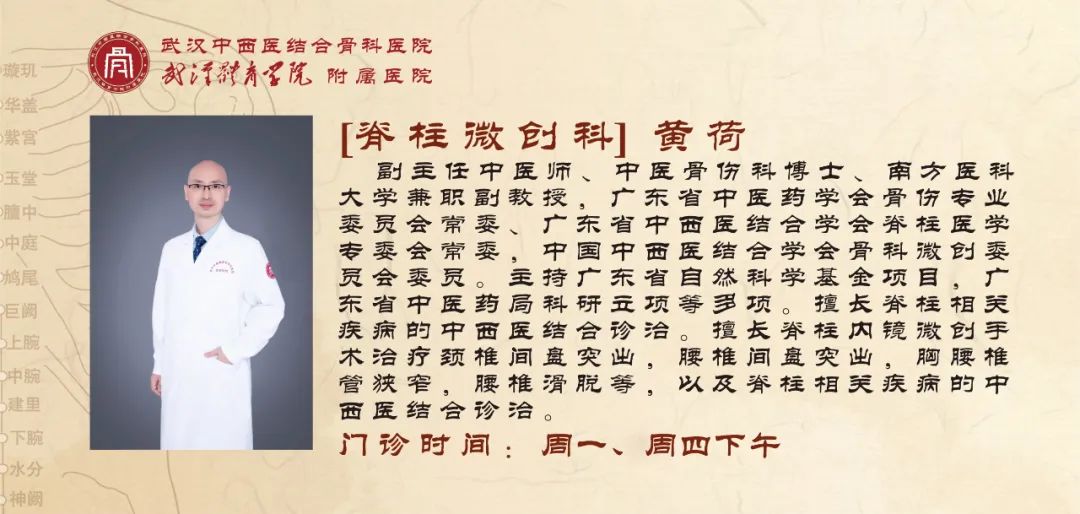 武汉中西医结合骨科医院
武汉体育学院 附属医院
[脊柱微创科] 黄荷
副主任中医师、中医骨伤科博士、南方医科
大学兼职副教授，广东省中医药学会骨伤专业
委员会常委、广东省中西医结合学会脊柱医学
专委会常委，中国中西医结合学会骨科微创委
员会委员。主持广东省自然科学基金项目，广
东省中医药局科研立项等多项。擅长脊柱相关
疾病的中西医结合诊治。擅长脊柱内镜微创手
术治疗颈椎间盘突出，腰椎间盘突出，胸腰椎
管狭窄，腰椎滑脱等，以及脊柱相关疾病的中
西医结合诊治。
门诊时间：周一、周四下午
璇玑
华盖
紫宫
玉堂
膻中
中庭
鸠尾
巨阙
上脘
中脘
建里
下脘
水分
神阙
骨